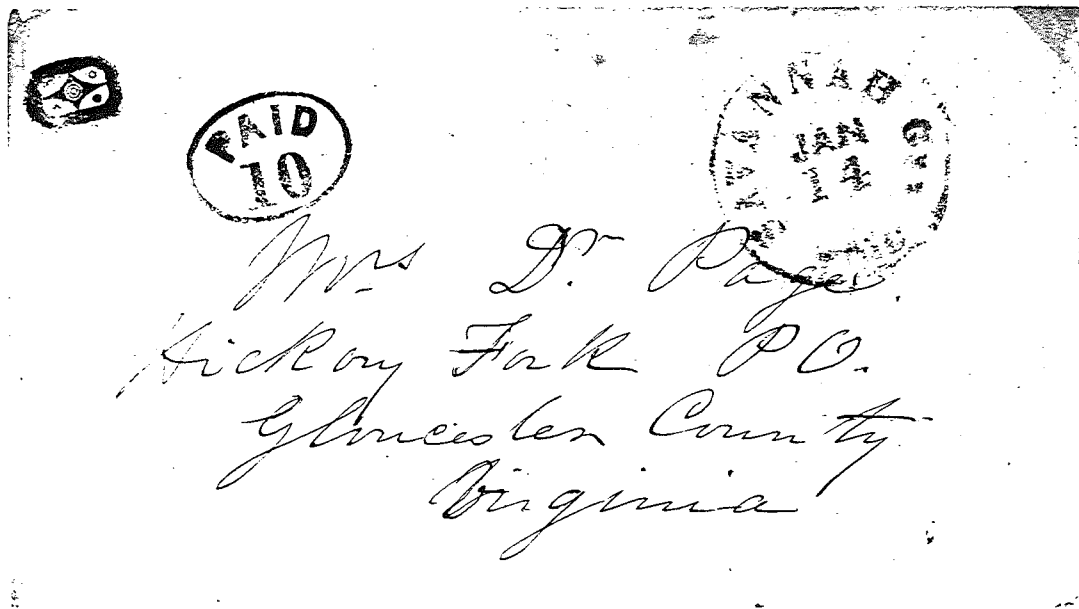 PAID
10
SAVANNAH
Mrs Dr. Page.
Hickory Fork P O.
Gloucester County
Virginia